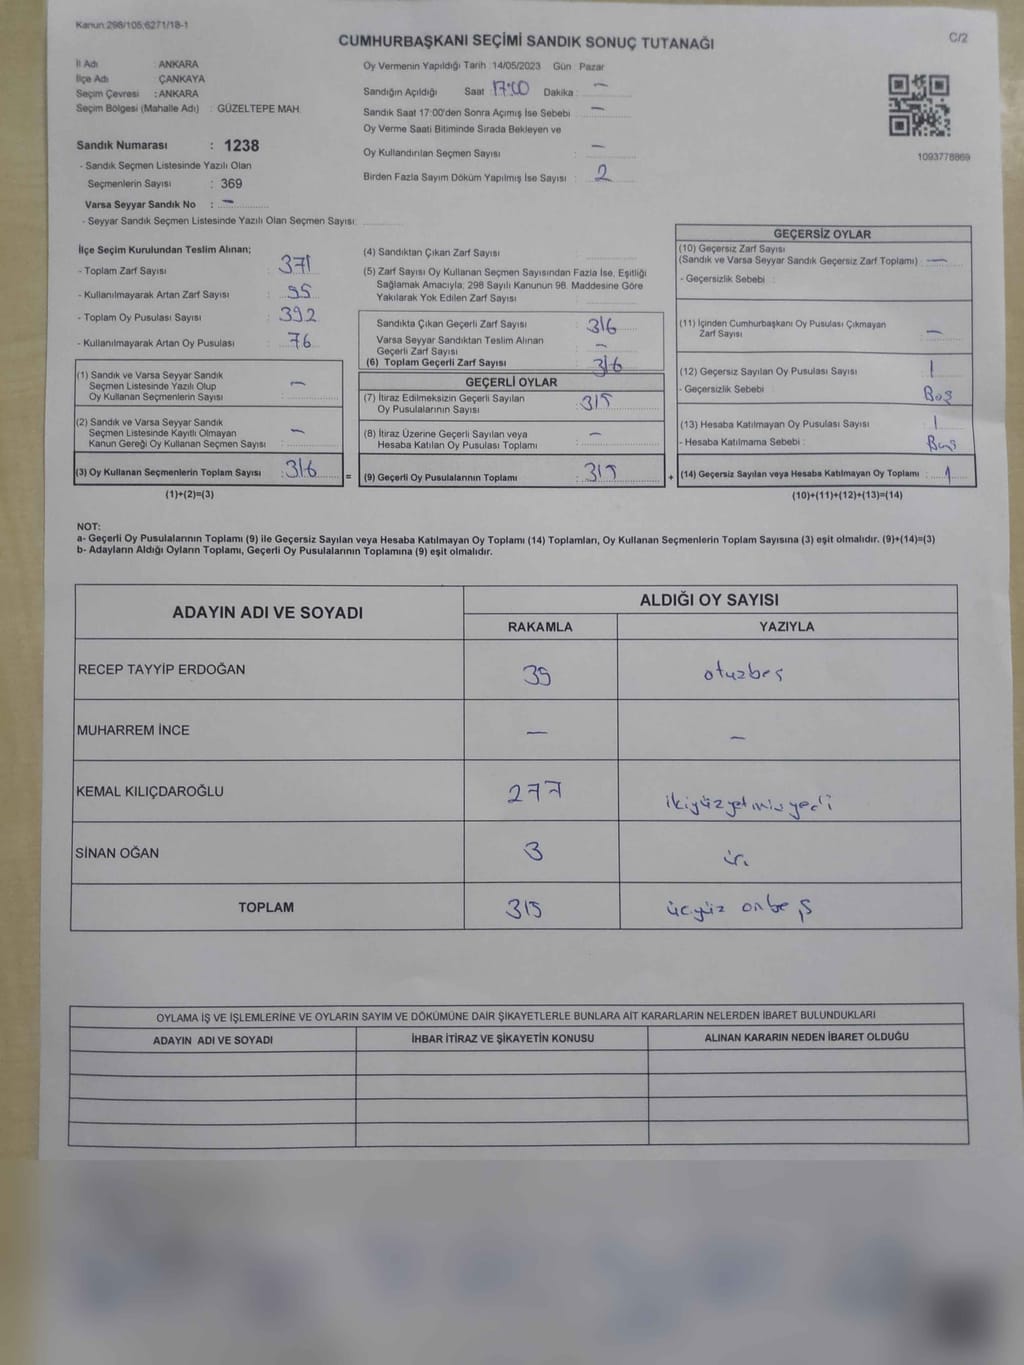 Kanun 298/105;6271/18-1
C/2
CUMHURBAŞKANI SEÇİMİ SANDIK SONUÇ TUTANAĞI
İl Adı : ANKARA
İlçe Adı : ÇANKAYA
Seçim Çevresi : ANKARA
Seçim Bölgesi (Mahalle Adı) : GÜZELTEPE MAH.
Sandık Numarası : 1238
- Sandık Seçmen Listesinde Yazılı Olan
Seçmenlerin Sayısı : 369
Varsa Seyyar Sandık No : —
- Seyyar Sandık Seçmen Listesinde Yazılı Olan Seçmen Sayısı:
Oy Vermenin Yapıldığı Tarih 14/05/2023 Gün Pazar
Sandığın Açıldığı Saat : 17:00 Dakika : —
Sandık Saat 17:00'den Sonra Açımış İse Sebebi : —
Oy Verme Saati Bitiminde Sırada Bekleyen ve
Oy Kullandırılan Seçmen Sayısı : —
Birden Fazla Sayım Döküm Yapılmış İse Sayısı : 2
1093778869
İlçe Seçim Kurulundan Teslim Alınan;
- Toplam Zarf Sayısı : 371
- Kullanılmayarak Artan Zarf Sayısı : 55
- Toplam Oy Pusulası Sayısı : 392
- Kullanılmayarak Artan Oy Pusulası : 76
(1) Sandık ve Varsa Seyyar Sandık
Seçmen Listesinde Yazılı Olup
Oy Kullanan Seçmenlerin Sayısı : —
(2) Sandık ve Varsa Seyyar Sandık
Seçmen Listesinde Kayıtlı Olmayan
Kanun Gereği Oy Kullanan Seçmen Sayısı : —
(3) Oy Kullanan Seçmenlerin Toplam Sayısı : 316
(1)+(2)=(3)
(4) Sandıktan Çıkan Zarf Sayısı :
(5) Zarf Sayısı Oy Kullanan Seçmen Sayısından Fazla İse, Eşitliği
Sağlamak Amacıyla; 298 Sayılı Kanunun 98. Maddesine Göre
Yakılarak Yok Edilen Zarf Sayısı :
Sandıkta Çıkan Geçerli Zarf Sayısı : 316
Varsa Seyyar Sandıktan Teslim Alınan
Geçerli Zarf Sayısı : —
(6) Toplam Geçerli Zarf Sayısı : 316
GEÇERLİ OYLAR
(7) İtiraz Edilmeksizin Geçerli Sayılan
Oy Pusulalarının Sayısı : 315
(8) İtiraz Üzerine Geçerli Sayılan veya
Hesaba Katılan Oy Pusulası Toplamı : —
= (9) Geçerli Oy Pusulalarının Toplamı : 315
GEÇERSİZ OYLAR
(10) Geçersiz Zarf Sayısı
(Sandık ve Varsa Seyyar Sandık Geçersiz Zarf Toplamı) : —
- Geçersizlik Sebebi :
(11) İçinden Cumhurbaşkanı Oy Pusulası Çıkmayan
Zarf Sayısı : —
(12) Geçersiz Sayılan Oy Pusulası Sayısı : 1
- Geçersizlik Sebebi : Boş
(13) Hesaba Katılmayan Oy Pusulası Sayısı : 1
- Hesaba Katılmama Sebebi : Boş
+ (14) Geçersiz Sayılan veya Hesaba Katılmayan Oy Toplamı : 1
(10)+(11)+(12)+(13)=(14)
NOT:
a- Geçerli Oy Pusulalarının Toplamı (9) ile Geçersiz Sayılan veya Hesaba Katılmayan Oy Toplamı (14) Toplamları, Oy Kullanan Seçmenlerin Toplam Sayısına (3) eşit olmalıdır. (9)+(14)=(3)
b- Adayların Aldığı Oyların Toplamı, Geçerli Oy Pusulalarının Toplamına (9) eşit olmalıdır.
ADAYIN ADI VE SOYADI
ALDIĞI OY SAYISI
RAKAMLA YAZIYLA
RECEP TAYYİP ERDOĞAN 35 otuzbeş
MUHARREM İNCE — —
KEMAL KILIÇDAROĞLU 277 ikiyüzyetmişyedi
SİNAN OĞAN 3 üç
TOPLAM 315 üçyüz onbeş
OYLAMA İŞ VE İŞLEMLERİNE VE OYLARIN SAYIM VE DÖKÜMÜNE DAİR ŞİKAYETLERLE BUNLARA AİT KARARLARIN NELERDEN İBARET BULUNDUKLARI
ADAYIN ADI VE SOYADI İHBAR İTİRAZ VE ŞİKAYETİN KONUSU ALINAN KARARIN NEDEN İBARET OLDUĞU